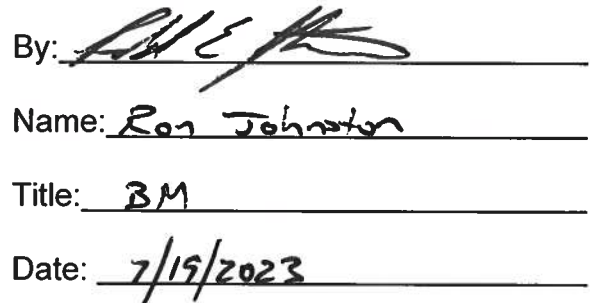 By:
Name: Ron Johnston
Title: BM
Date: 7/19/2023